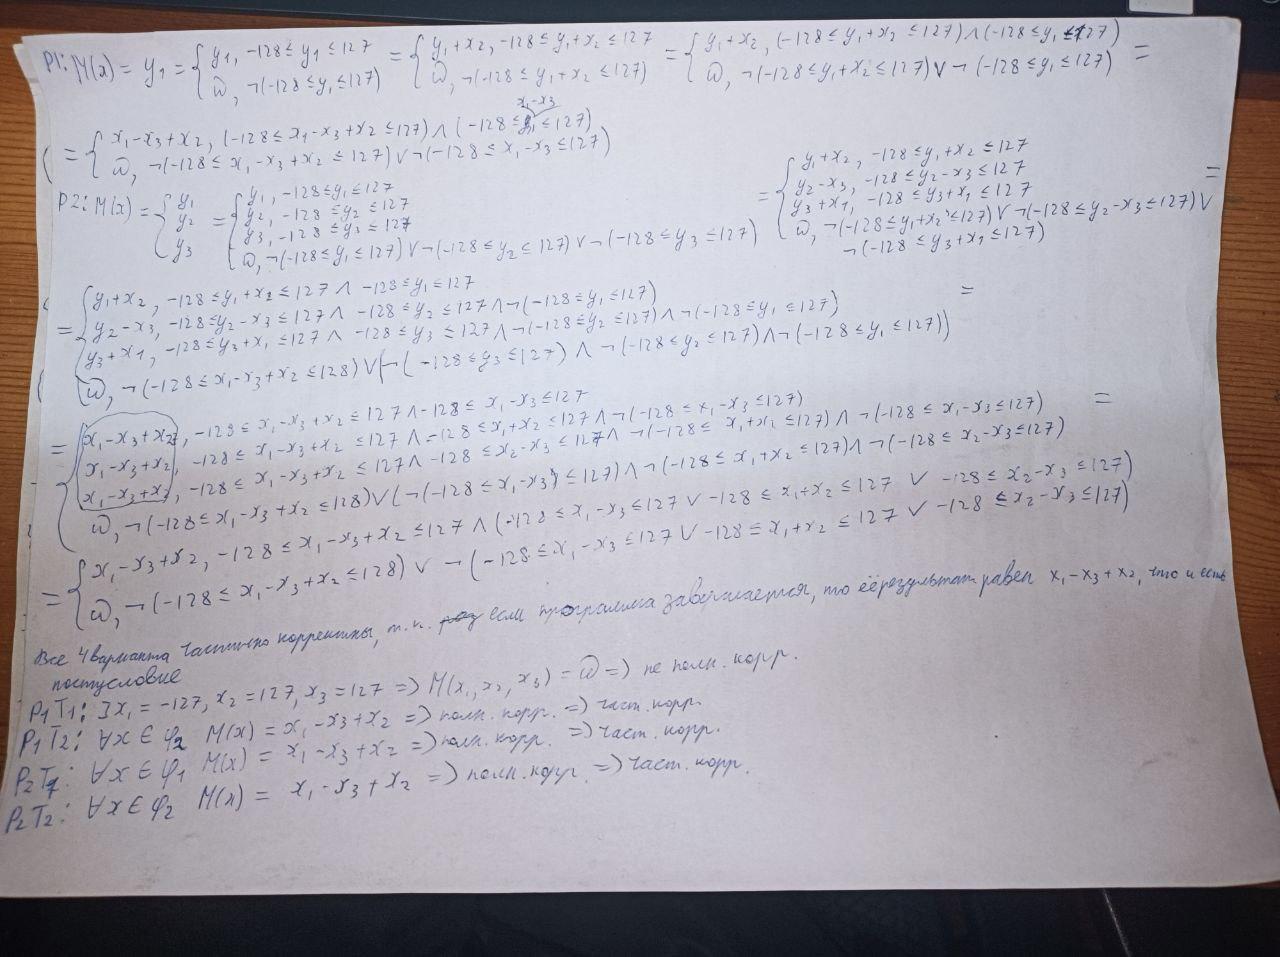 P1: M(x) = y₁ = { y₁, -128 ≤ y₁ ≤ 127 = { y₁+x₂, -128 ≤ y₁+x₂ ≤ 127 = { y₁+x₂, (-128 ≤ y₁+x₂ ≤ 127) ∧ (-128 ≤ y₁ ≤ 127) =
ω, ¬(-128 ≤ y₁ ≤ 127) ω, ¬(-128 ≤ y₁+x₂ ≤ 127) ω, ¬(-128 ≤ y₁+x₂ ≤ 127) ∨ ¬(-128 ≤ y₁ ≤ 127)
x₁-x₃
= { x₁-x₃+x₂, (-128 ≤ x₁-x₃+x₂ ≤ 127) ∧ (-128 ≤ y₁ ≤ 127)
ω, ¬(-128 ≤ x₁-x₃+x₂ ≤ 127) ∨ ¬(-128 ≤ x₁-x₃ ≤ 127)
P2: M(x) = { y₁ = { y₁, -128 ≤ y₁ ≤ 127 = { y₁+x₂, -128 ≤ y₁+x₂ ≤ 127 =
y₂ y₂, -128 ≤ y₂ ≤ 127 y₂-x₃, -128 ≤ y₂-x₃ ≤ 127
y₃ y₃, -128 ≤ y₃ ≤ 127 y₃+x₁, -128 ≤ y₃+x₁ ≤ 127
ω, ¬(-128 ≤ y₁ ≤ 127) ∨ ¬(-128 ≤ y₂ ≤ 127) ∨ ¬(-128 ≤ y₃ ≤ 127) ω, ¬(-128 ≤ y₁+x₂ ≤ 127) ∨ ¬(-128 ≤ y₂-x₃ ≤ 127) ∨
¬(-128 ≤ y₃+x₁ ≤ 127)
= { y₁+x₂, -128 ≤ y₁+x₂ ≤ 127 ∧ -128 ≤ y₁ ≤ 127 =
y₂-x₃, -128 ≤ y₂-x₃ ≤ 127 ∧ -128 ≤ y₂ ≤ 127 ∧ ¬(-128 ≤ y₁ ≤ 127)
y₃+x₁, -128 ≤ y₃+x₁ ≤ 127 ∧ -128 ≤ y₃ ≤ 127 ∧ ¬(-128 ≤ y₂ ≤ 127) ∧ ¬(-128 ≤ y₁ ≤ 127)
ω, ¬(-128 ≤ x₁-x₃+x₂ ≤ 128) ∨ (¬(-128 ≤ y₃ ≤ 127) ∧ ¬(-128 ≤ y₂ ≤ 127) ∧ ¬(-128 ≤ y₁ ≤ 127))
= { x₁-x₃+x₂, -128 ≤ x₁-x₃+x₂ ≤ 127 ∧ -128 ≤ x₁-x₃ ≤ 127 =
x₁-x₃+x₂, -128 ≤ x₁-x₃+x₂ ≤ 127 ∧ -128 ≤ x₁+x₂ ≤ 127 ∧ ¬(-128 ≤ x₁-x₃ ≤ 127)
x₁-x₃+x₂, -128 ≤ x₁-x₃+x₂ ≤ 127 ∧ -128 ≤ x₂-x₃ ≤ 127 ∧ ¬(-128 ≤ x₁+x₂ ≤ 127) ∧ ¬(-128 ≤ x₁-x₃ ≤ 127)
ω, ¬(-128 ≤ x₁-x₃+x₂ ≤ 128) ∨ (¬(-128 ≤ x₁-x₃) ≤ 127) ∧ ¬(-128 ≤ x₁+x₂ ≤ 127) ∧ ¬(-128 ≤ x₂-x₃ ≤ 127)
= { x₁-x₃+x₂, -128 ≤ x₁-x₃+x₂ ≤ 127 ∧ (-128 ≤ x₁-x₃ ≤ 127 ∨ -128 ≤ x₁+x₂ ≤ 127 ∨ -128 ≤ x₂-x₃ ≤ 127)
ω, ¬(-128 ≤ x₁-x₃+x₂ ≤ 128) ∨ ¬(-128 ≤ x₁-x₃ ≤ 127 ∨ -128 ≤ x₁+x₂ ≤ 127 ∨ -128 ≤ x₂-x₃ ≤ 127)
Все 4 варианта частично корректны, т.к. если программа завершается, то её результат равен x₁-x₃+x₂, что и есть
постусловие
P₁T₁: ∃x₁ = -127, x₂ = 127, x₃ = 127 => M(x₁, x₂, x₃) = ω => не полн. корр.
P₁T₂: ∀x ∈ φ₂ M(x) = x₁-x₃+x₂ => полн. корр. => част. корр.
P₂T₁: ∀x ∈ φ₁ M(x) = x₁-x₃+x₂ => полн. корр. => част. корр.
P₂T₂: ∀x ∈ φ₂ M(x) = x₁-x₃+x₂ => полн. корр. => част. корр.